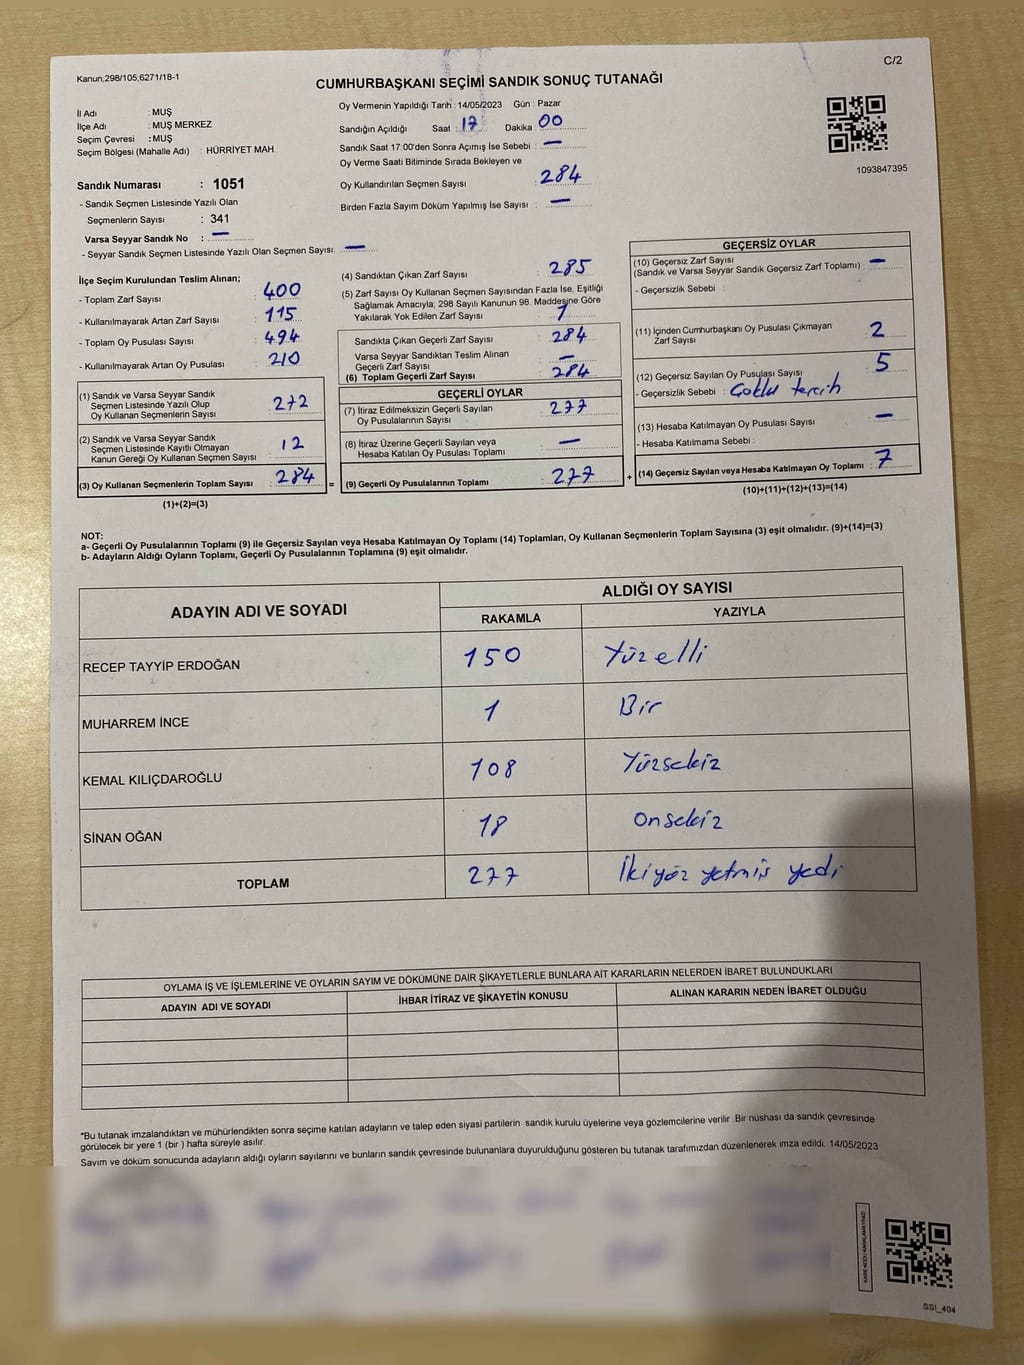 Kanun;298/105;6271/18-1
C/2
CUMHURBAŞKANI SEÇİMİ SANDIK SONUÇ TUTANAĞI
İl Adı : MUŞ
İlçe Adı : MUŞ MERKEZ
Seçim Çevresi : MUŞ
Seçim Bölgesi (Mahalle Adı) : HÜRRİYET MAH.
Sandık Numarası : 1051
- Sandık Seçmen Listesinde Yazılı Olan
Seçmenlerin Sayısı : 341
Varsa Seyyar Sandık No : —
- Seyyar Sandık Seçmen Listesinde Yazılı Olan Seçmen Sayısı: —
Oy Vermenin Yapıldığı Tarih : 14/05/2023 Gün : Pazar
Sandığın Açıldığı Saat : 17 Dakika : 00
Sandık Saat 17:00'den Sonra Açımış İse Sebebi : —
Oy Verme Saati Bitiminde Sırada Bekleyen ve
Oy Kullandırılan Seçmen Sayısı : 284
Birden Fazla Sayım Döküm Yapılmış İse Sayısı : —
1093847395
İlçe Seçim Kurulundan Teslim Alınan;
- Toplam Zarf Sayısı : 400
- Kullanılmayarak Artan Zarf Sayısı : 115
- Toplam Oy Pusulası Sayısı : 494
- Kullanılmayarak Artan Oy Pusulası : 210
(1) Sandık ve Varsa Seyyar Sandık
Seçmen Listesinde Yazılı Olup
Oy Kullanan Seçmenlerin Sayısı : 272
(2) Sandık ve Varsa Seyyar Sandık
Seçmen Listesinde Kayıtlı Olmayan
Kanun Gereği Oy Kullanan Seçmen Sayısı : 12
(3) Oy Kullanan Seçmenlerin Toplam Sayısı : 284 =
(1)+(2)=(3)
(4) Sandıktan Çıkan Zarf Sayısı : 285
(5) Zarf Sayısı Oy Kullanan Seçmen Sayısından Fazla İse, Eşitliği
Sağlamak Amacıyla; 298 Sayılı Kanunun 98. Maddesine Göre
Yakılarak Yok Edilen Zarf Sayısı : 1
Sandıkta Çıkan Geçerli Zarf Sayısı : 284
Varsa Seyyar Sandıktan Teslim Alınan
Geçerli Zarf Sayısı : —
(6) Toplam Geçerli Zarf Sayısı : 284
GEÇERLİ OYLAR
(7) İtiraz Edilmeksizin Geçerli Sayılan
Oy Pusulalarının Sayısı : 277
(8) İtiraz Üzerine Geçerli Sayılan veya
Hesaba Katılan Oy Pusulası Toplamı : —
(9) Geçerli Oy Pusulalarının Toplamı : 277 +
GEÇERSİZ OYLAR
(10) Geçersiz Zarf Sayısı
(Sandık ve Varsa Seyyar Sandık Geçersiz Zarf Toplamı) : —
- Geçersizlik Sebebi :
(11) İçinden Cumhurbaşkanı Oy Pusulası Çıkmayan
Zarf Sayısı : 2
(12) Geçersiz Sayılan Oy Pusulası Sayısı : 5
- Geçersizlik Sebebi : Çoklu tercih
(13) Hesaba Katılmayan Oy Pusulası Sayısı : —
- Hesaba Katılmama Sebebi :
(14) Geçersiz Sayılan veya Hesaba Katılmayan Oy Toplamı : 7
(10)+(11)+(12)+(13)=(14)
NOT:
a- Geçerli Oy Pusulalarının Toplamı (9) ile Geçersiz Sayılan veya Hesaba Katılmayan Oy Toplamı (14) Toplamları, Oy Kullanan Seçmenlerin Toplam Sayısına (3) eşit olmalıdır. (9)+(14)=(3)
b- Adayların Aldığı Oyların Toplamı, Geçerli Oy Pusulalarının Toplamına (9) eşit olmalıdır.
ADAYIN ADI VE SOYADI
ALDIĞI OY SAYISI
RAKAMLA YAZIYLA
RECEP TAYYİP ERDOĞAN 150 Yüzelli
MUHARREM İNCE 1 Bir
KEMAL KILIÇDAROĞLU 108 Yüzsekiz
SİNAN OĞAN 18 onsekiz
TOPLAM 277 İkiyüz yetmiş yedi
OYLAMA İŞ VE İŞLEMLERİNE VE OYLARIN SAYIM VE DÖKÜMÜNE DAİR ŞİKAYETLERLE BUNLARA AİT KARARLARIN NELERDEN İBARET BULUNDUKLARI
ADAYIN ADI VE SOYADI İHBAR İTİRAZ VE ŞİKAYETİN KONUSU ALINAN KARARIN NEDEN İBARET OLDUĞU
*Bu tutanak imzalandıktan ve mühürlendikten sonra seçime katılan adayların ve talep eden siyasi partilerin sandık kurulu üyelerine veya gözlemcilerine verilir. Bir nüshası da sandık çevresinde
görülecek bir yere 1 (bir ) hafta süreyle asılır.
Sayım ve döküm sonucunda adayların aldığı oyların sayılarını ve bunların sandık çevresinde bulunanlara duyurulduğunu gösteren bu tutanak tarafımızdan düzenlenerek imza edildi. 14/05/2023
SSI_404